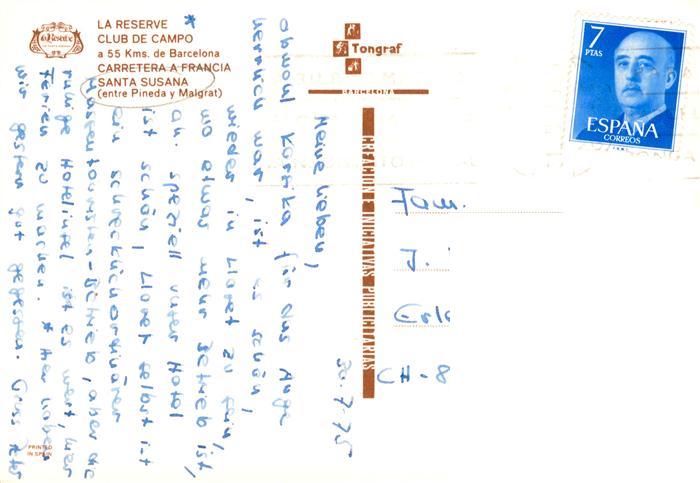 La Reserve
LA RESERVE
CLUB DE CAMPO
a 55 Kms. de Barcelona
CARRETERA A FRANCIA
SANTA SUSANA
(entre Pineda y Malgrat)
Tongraf
BARCELONA
CREACION E INICIATIVAS PUBLICITARIAS
7
PTAS
ESPAÑA
CORREOS
30.7.75
Meine Lieben,
obwohl Korsika für das Auge
herrlich war, ist es schön,
wieder in Lloret zu sein,
wo etwas mehr Betrieb ist,
als. Speziell unser Hotel
ist schön, Lloret selbst ist
ein schrecklich ordinärer
Massentouristen-Betrieb, aber die
ruhige Hotelinsel ist es wert, hier
Ferien zu machen. * Hier haben
wir gestern gut gegessen. Gruss
*
Fam.
J.
CH-8
PRINTED
IN SPAIN